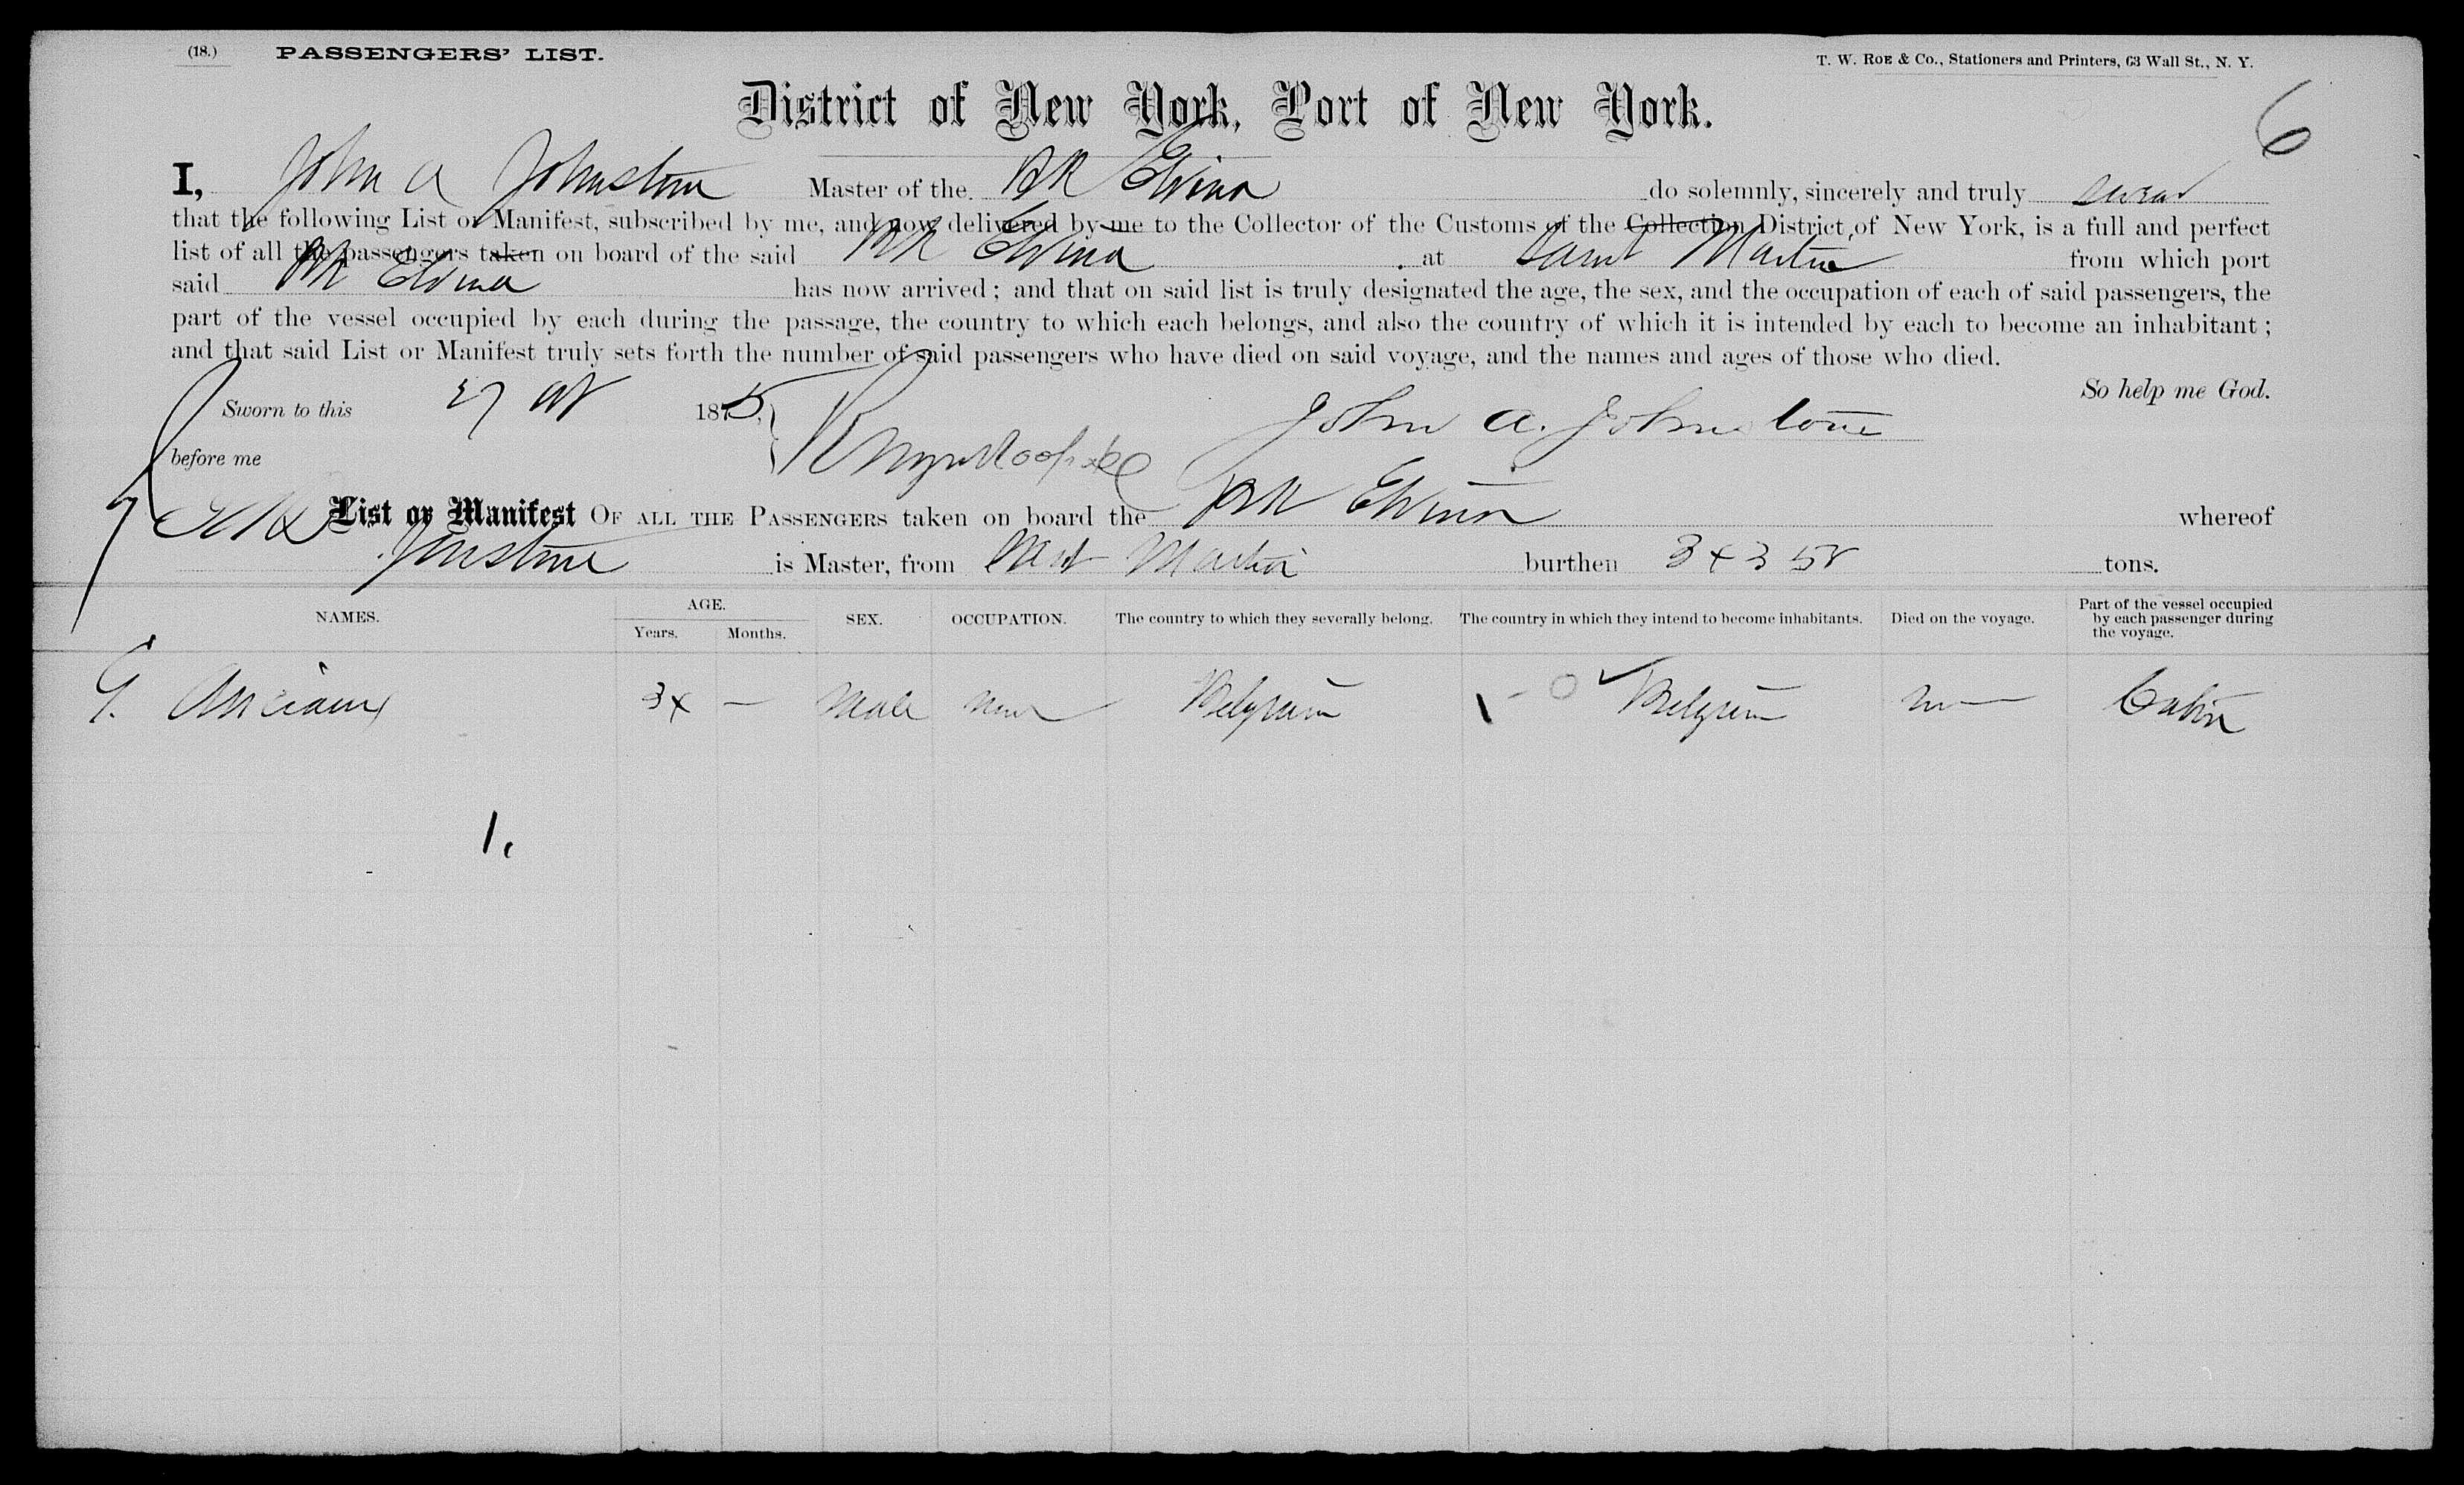 (18.) PASSENGERS' LIST. T. W. ROE & Co., Stationers and Printers, 63 Wall St., N. Y.
6
District of New York, Port of New York.
I, John A Johnstone Master of the BK Elvina do solemnly, sincerely and truly swear
that the following List or Manifest, subscribed by me, and now delivered by me to the Collector of the Customs of the Collection District of New York, is a full and perfect
list of all the passengers taken on board of the said BK Elvina at Saint Martin from which port
said BK Elvina has now arrived; and that on said list is truly designated the age, the sex, and the occupation of each of said passengers, the
part of the vessel occupied by each during the passage, the country to which each belongs, and also the country of which it is intended by each to become an inhabitant;
and that said List or Manifest truly sets forth the number of said passengers who have died on said voyage, and the names and ages of those who died.
So help me God.
Sworn to this 27 1875, John A. Johnstone
before me
List or Manifest OF ALL THE PASSENGERS taken on board the BK Elvina whereof
Jonstone is Master, from Martin burthen tons.
NAMES. AGE. Years. Months. SEX. OCCUPATION. The country to which they severally belong. The country in which they intend to become inhabitants. Died on the voyage. Part of the vessel occupied by each passenger during the voyage.
G. Anciaux 34 — Male Belgium Belgium Cabin
1.